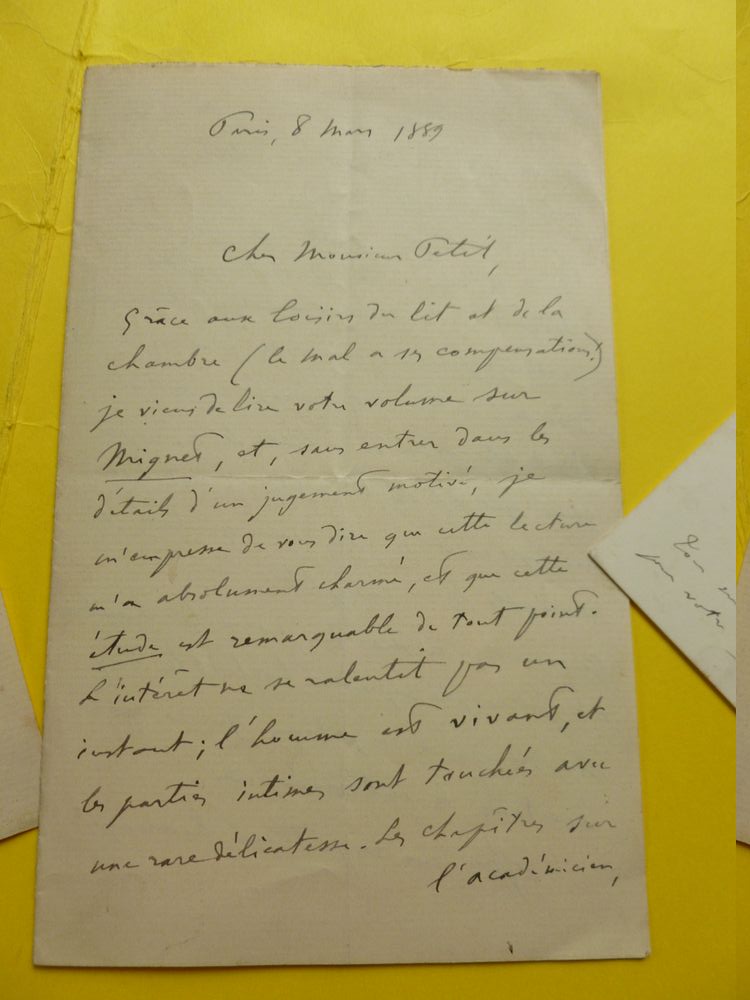 Paris, 8 mars 1889
Cher Monsieur Petit,
Grâce aux loisirs du lit et de la
chambre (le mal a ses compensations!)
je viens de lire votre volume sur
Mignet, et, sans entrer dans les
détails d'un jugement motivé, je
m'empresse de vous dire que cette lecture
m'a absolument charmé, et que cette
étude est remarquable de tout point.
L'intérêt ne se ralentit pas un
instant; l'homme est vivant, et
les parties intimes sont touchées avec
une rare délicatesse. Les chapîtres sur
l'académicien,
votre